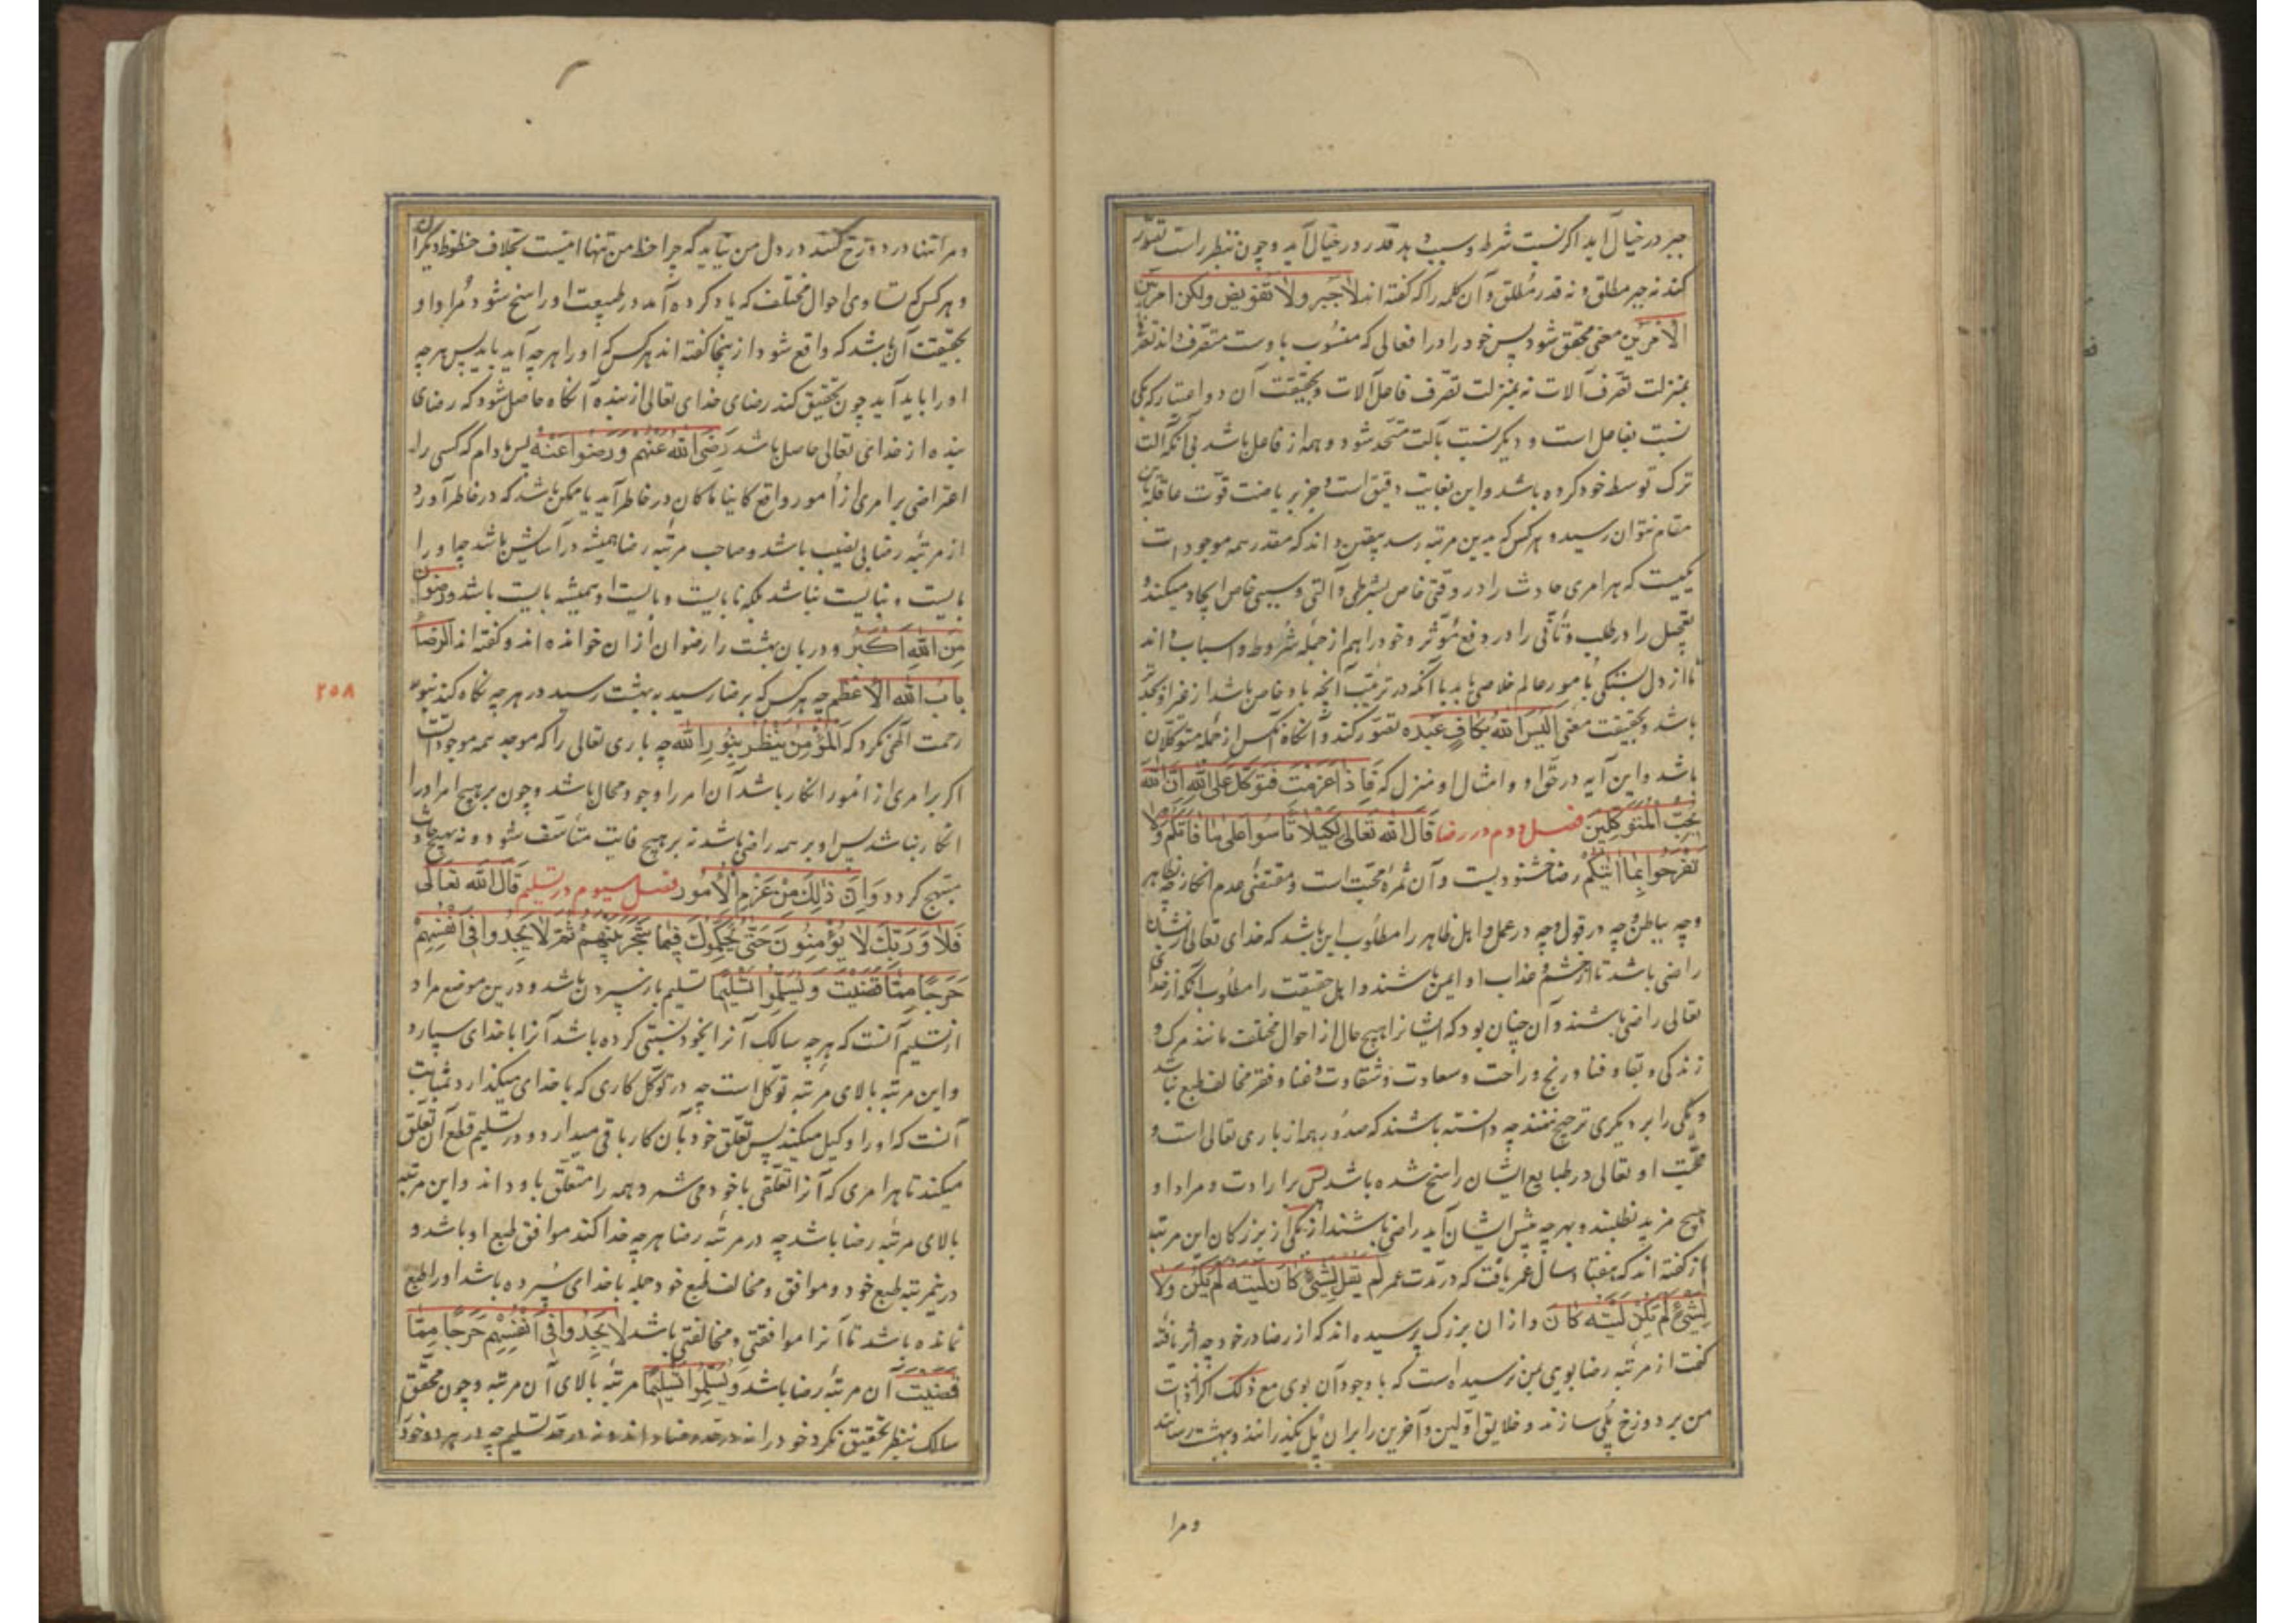 جبر در خیال آید اگر نسبت شرط و سبب دهد قدر در خیال آید و چون بنظر راست تصور
کند نه جبر مطلق و نه قدر مطلق و آن کلمه را که گفته اند لا جبر ولا تفویض ولکن امر بین
الامرین معنی محقق شود پس خود را در افعالی که منسوب باوست متصرف داند تصرفی
بمنزلت تصرف آلات نه بمنزلت تصرف فاعل آلات و بحقیقت آن دو اعتبار که یکی
نسبت بفاعل است و دیگر نسبت بآلت متحد شود و همه از فاعل باشد بی آنکه آلت
ترک توسط خود کرده باشد و این بغایت دقیق است و جز بریاضت قوت عاقله باین
مقام نتوان رسید و هر کس که بدین مرتبه رسد بیقین داند که مقدر همه موجودات
یکیست که هر امری حادث را در وقتی خاص بشرطی و آلتی و سببی خاص ایجاد میکند و
تعجیل را در طلب و تأنی را در دفع مؤثر و خود را هم از جمله شروط و اسباب داند
تا از دل بستگی بامور عالم خلاصی یابد با آنکه در ترتیب آنچه باو خاص باشد از غیر او بجدتر
باشد و بحقیقت معنی الیس الله بکاف عبده تصور کند و آنگاه آنکس از جمله متوکلان
باشد و این آیه در حق او و امثال او منزل که فاذا عزمت فتوکل علی الله ان الله
یحب المتوکلین فصل دوم در رضا قال الله تعالی لکیلا تأسوا علی ما فاتکم ولا
تفرحوا بما اتیکم رضا خشنودیست و آن ثمرهٔ محبت است و مقتضی عدم انکار چه بظاهر
وچه بباطن وچه در قول وچه در عمل و اهل ظاهر را مطلوب این باشد که خدای تعالی از ایشان
راضی باشد تا از خشم و عذاب او ایمن باشند و اهل حقیقت را مطلوب آنکه از خدای
تعالی راضی باشند و آن چنان بود که ایشانرا هیچ حال از احوال مختلف مانند مرگ و
زندگی و بقا و فنا و رنج و راحت و سعادت و شقاوت و غنا و فقر مخالف طبع نباشد
و یکی را بر دیگری ترجیح ننهند چه دانسته باشند که صدور همه از باری تعالی است و
محبت او تعالی در طبایع ایشان راسخ شده باشد پس بر ارادت و مراد او
هیچ مزید نطلبند و بهر چه پیش ایشان آید راضی باشند از یکی از بزرگان این مرتبه
باز گفته اند که هفتاد سال عمر یافت که در مدت عمر لم یقل لشیء کان لیته لم یکن ولا
لشیء لم یکن لیته کان و از ان بزرگ پرسیده اند که از رضا در خود چه اثر یافتهٔ
گفت از مرتبه رضا بویی بمن نرسیده است که با وجود آن بوی مع ذلک اگر از ذات
من بر دوزخ پلی سازند و خلایق اولین و آخرین را بر ان پل بگذرانند و ببهشت رسانند
و مرا
و مرا تنها در دوزخ کنند در دل من نیاید که چرا حظ من تنها اینست بخلاف حظوظ دیگران
و هر کس که تساوی احوال مختلف که یاد کرده آمد در طبیعت او راسخ شود مراد او
بحقیقت آن باشد که واقع شود از ینجا گفته اند هر کس که او را هر چه آید باید پس هر چه
او را باید آید چون تحقیق کنند رضای خدای تعالی از بنده آنگاه حاصل شود که رضای
بنده از خدای تعالی حاصل باشد رضی الله عنهم ورضوا عنه پس مادام که کسی را
اعتراضی بر امری از امور واقع کاینا ما کان در خاطر آید یا ممکن باشد که در خاطر آورد
از مرتبه رضا بی نصیب باشد و صاحب مرتبه رضا همیشه در آسایش باشد چه او را
بایست و نبایست نباشد بلکه نابایست و بایست او همیشه بایست باشد ورضوان
من الله اکبر و دربان بهشت را رضوان از ان خوانده اند و گفته اند الرضا
باب الله الاعظم چه هر کس که برضا رسید به بهشت رسید در هر چه نگاه کند بنور
رحمت الهی نگرد که المؤمن ینظر بنور الله چه باری تعالی را که موجد همه موجوداتست
اگر بر امری از امور انکار باشد آن امر را وجود محال باشد و چون بر هیچ امر او را
انکار نباشد پس او بر همه راضی باشد نه بر هیچ فایت متأسف شود و نه بهیچ حادث
مبتهج گردد وان ذلک من عزم الامور فصل سیوم در تسلیم قال الله تعالی
فلا وربک لا یؤمنون حتی یحکموک فیما شجر بینهم ثم لا یجدوا فی انفسهم
حرجا مما قضیت ویسلموا تسلیما تسلیم باز سپردن باشد و درین موضع مراد
از تسلیم آنست که هر چه سالک آنرا بخود نسبتی کرده باشد آنرا با خدای سپارد
و این مرتبه بالای مرتبه توکل است چه در توکل کاری که با خدای میگذارد بمثابت
آنست که او را وکیل میکند پس تعلق خود بآن کار باقی میدارد و در تسلیم قطع آن تعلق
میکند تا هر امری که آنرا تعلقی با خود می شمرد همه را متعلق باو داند و این مرتبه
بالای مرتبه رضا باشد چه در مرتبه رضا هر چه خدا کند موافق طبع او باشد و
درین مرتبه طبع خود و موافق و مخالف طبع خود جمله با خدای سپرده باشد او را طبع
نمانده باشد تا آنرا موافقتی و مخالفتی باشد لا یجدوا فی انفسهم حرجا مما
قضیت آن مرتبه رضا باشد ویسلموا تسلیما مرتبه بالای آن مرتبه و چون محقق
سالک بنظر تحقیق نگرد خود را نه در حد رضا داند و نه در حد تسلیم چه در هر دو خود
٢٥٨